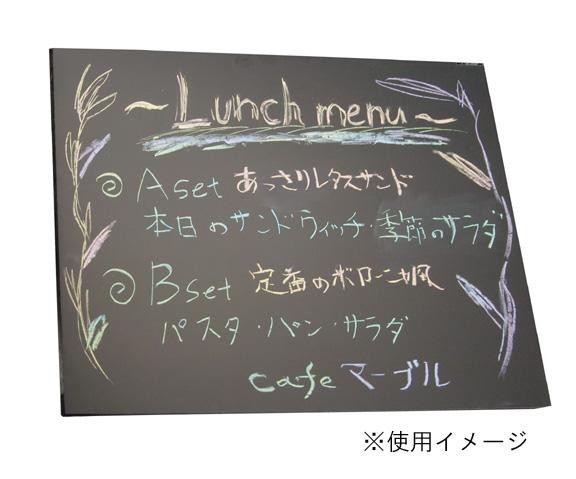 ~Lunch menu~
◎ A set あっさりレタスサンド
本日のサンドウィッチ・季節のサラダ
◎ B set 定番のボローニャ風
パスタ・パン・サラダ
cafe マーブル
※使用イメージ